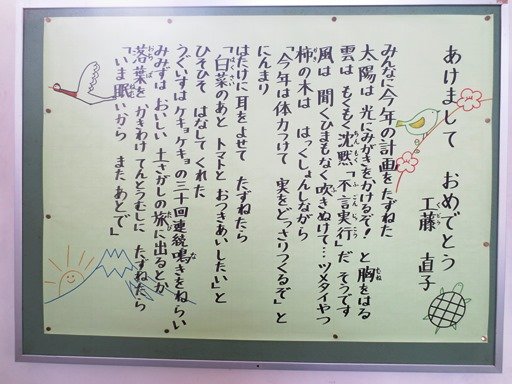 あけまして おめでとう
工藤 直子
みんなに今年の計画をたずねた
太陽は 光にみがきをかけるぞ! と胸をはる
雲は もくもく沈黙「不言実行」だ そうです
風は 聞くひまもなく吹きぬけて…ツメタイやつ
柿の木は はっくしょんしながら
「今年は体力つけて 実をどっさりつくるぞ」と
にんまり
はたけに耳をよせて たずねたら
「白菜のあと トマトと おつきあいしたい」と
ひそひそ はなしてくれた
うぐいすはケキョケキョの三十回連続鳴きをねらい
みみずは おいしい土さがしの旅に出るとか
落葉を かきわけ てんとうむしに たずねたら
「いま眠いから また あとで」